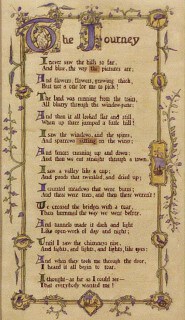 The Journey
I never saw the hills so far
And blue, the way the pictures are;
And flowers, flowers, growing thick,
But not a one for me to pick!
The land was running from the train,
All blurry through the window-pane;
And then it all looked flat and still,
When up there jumped a little hill!
I saw the windows, and the spires,
And sparrows sitting on the wires;
And fences running up and down;
And then we cut straight through a town.
I saw a valley like a cup;
And ponds that twinkled, and dried up;
I counted meadows that were burnt;
And there were trees, and then there weren't!
We crossed the bridges with a roar,
Then hummed the way we went before;
And tunnels made it dark and light
Like open-work of day and night;
Until I saw the chimneys rise,
And lights, and lights, and lights, like eyes;
And when they took me through the door,
I heard it all begin to roar.
I thought—as far as I could see—
That everybody wanted me!